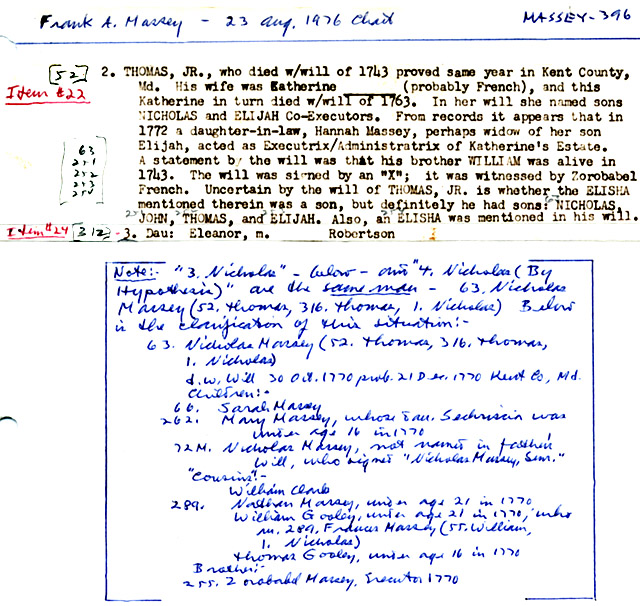 Frank A. Massey - 23 Aug. 1976 Chart
MASSEY-396
[52]
Item #22
2. THOMAS, JR., who died w/will of 1743 proved same year in Kent County,
Md. His wife was Katherine (probably French), and this
Katherine in turn died w/will of 1763. In her will she named sons
NICHOLAS and ELIJAH Co-Executors. From records it appears that in
1772 a daughter-in-law, Hannah Massey, perhaps widow of her son
Elijah, acted as Executrix/Administratrix of Katherine's Estate.
A statement by the will was that his brother WILLIAM was alive in
1743. The will was signed by an "X"; it was witnessed by Zorobabel
French. Uncertain by the will of THOMAS, JR. is whether the ELISHA
mentioned therein was a son, but definitely he had sons: NICHOLAS,
JOHN, THOMAS, and ELIJAH. Also, an ELISHA was mentioned in his will.
63
251
252
253
Item #24 [312]
3. Dau: Eleanor, m. Robertson
Note:- "3. Nicholas" - below - and "4. Nicholas (By
Hypothesis)" are the same man - 63. Nicholas
Massey (52. Thomas, 316. Thomas, 1. Nicholas) Below
is the clarification of this situation:-
63. Nicholas Massey (52. Thomas, 316. Thomas,
1. Nicholas)
d.w. Will 30 Oct. 1770 prob. 21 Dec. 1770 Kent Co, Md.
Children:-
66. Sarah Massey
262. Mary Massey, whose dau. Sechriscia was
under age 16 in 1770
72M. Nicholas Massey, not named in father's
Will, who signed "Nicholas Massey, Sem."
"Cousins":-
William Clark
289. Nathan Massey, under age 21 in 1770
William Gooley, under age 21 in 1770, who
m. 289. Frances Massey (55. William,
1. Nicholas)
Thomas Gooley, under age 16 in 1770
Brother:-
255. Zorobabel Massey, Executor 1770